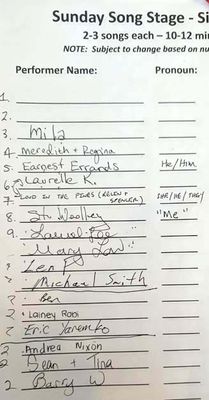 Sunday Song Stage - Si
2-3 songs each – 10-12 min
NOTE: Subject to change based on nu
Performer Name: Pronoun:
1.
2.
3. Mila
4. Meredith + Regina
5. Earnest Errands He/Him
6. Laurelle K.
7. LOUD IN THE PINES (HELEN + SPENCER) SHE/HE/THEY
8. Stu "Me"
9.
Mary Lou
Len P
Michael Smith
Ben
2 Lainey Rabi
2 Eric Yaremko
2 Andrea Nixon
2 Sean + Tina
2 Barry W